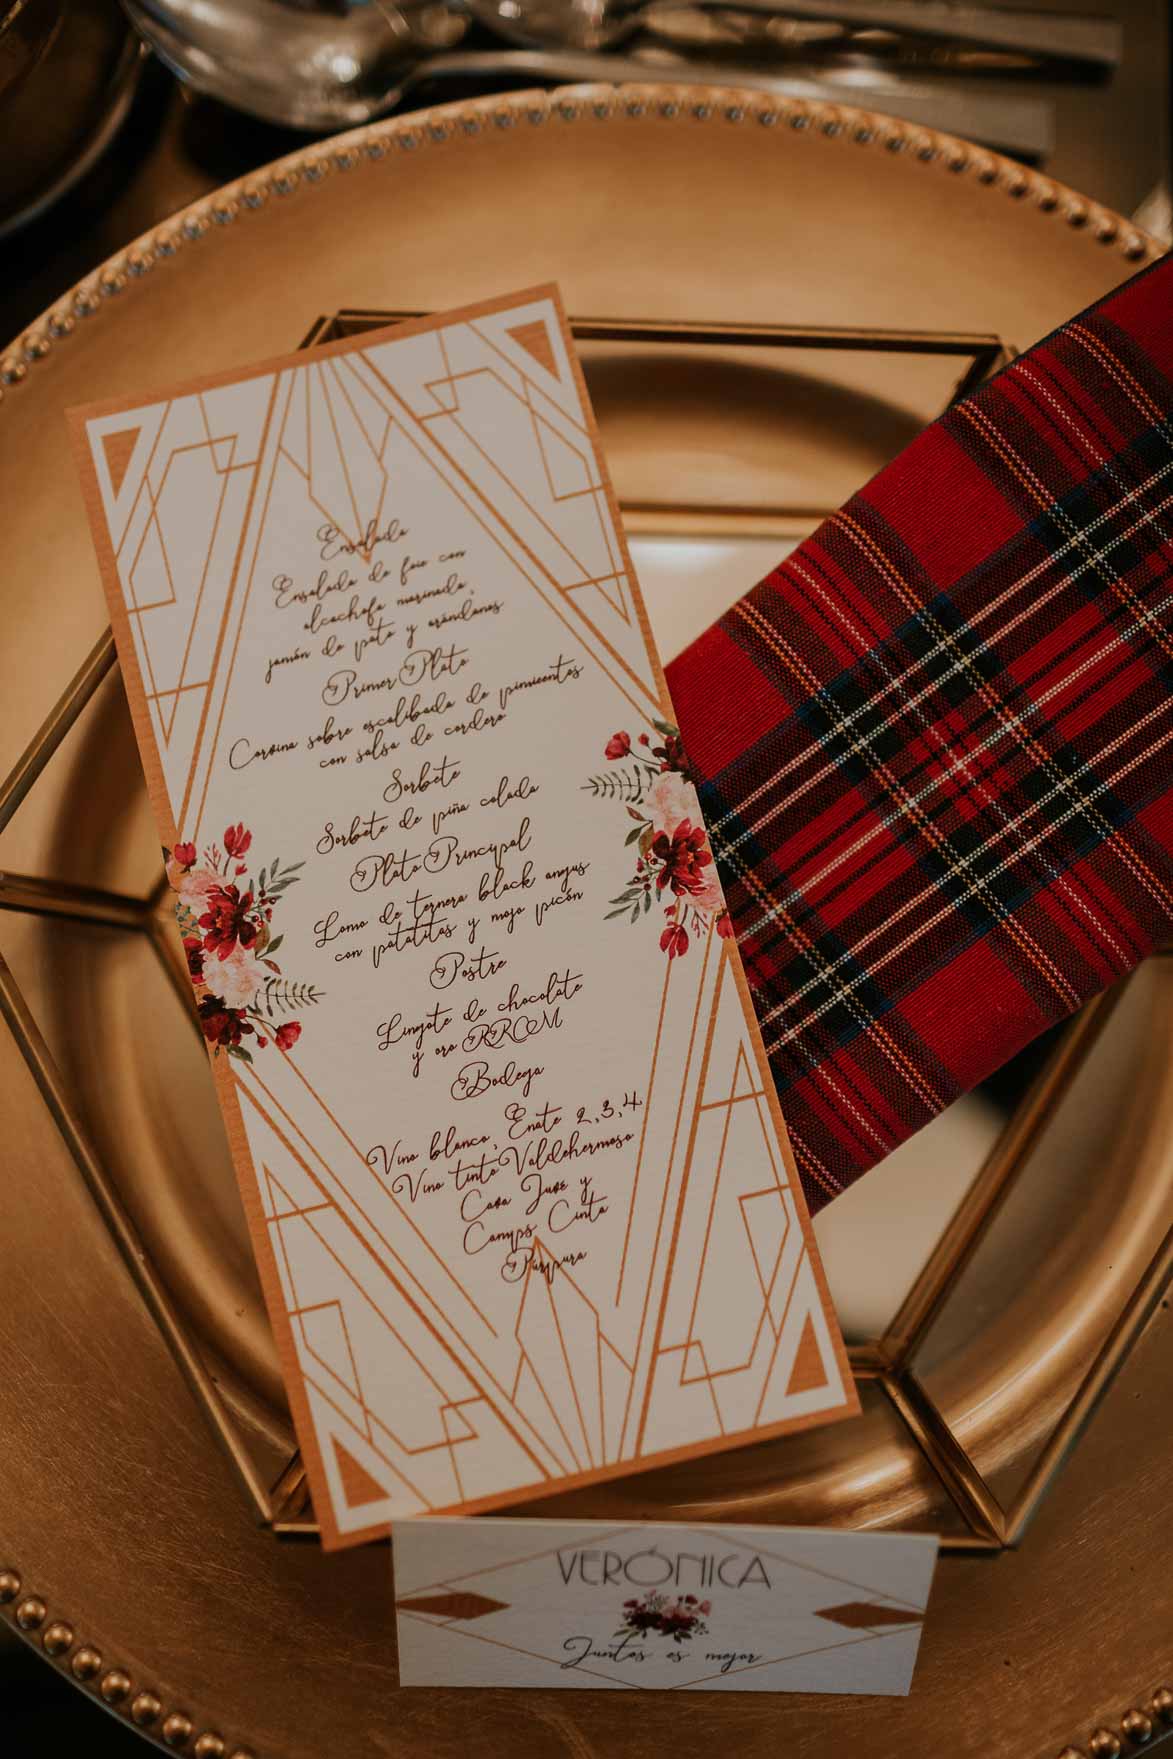 Ensalada
Ensalada de foie con
alcachofa marinada,
jamón de pato y arándanos
Primer Plato
Corvina sobre escalibada de pimientos
con salsa de cordero
Sorbete
Sorbete de piña colada
Plato Principal
Lomo de ternera black angus
con patatitas y mojo picón
Postre
Lingote de chocolate
y oro RROM
Bodega
Vino blanco, Enate 2,3,4
Vino tinto Valdehermoso
Cava Juve y
Camps Cinta
Púrpura
VERÓNICA
Juntos es mejor